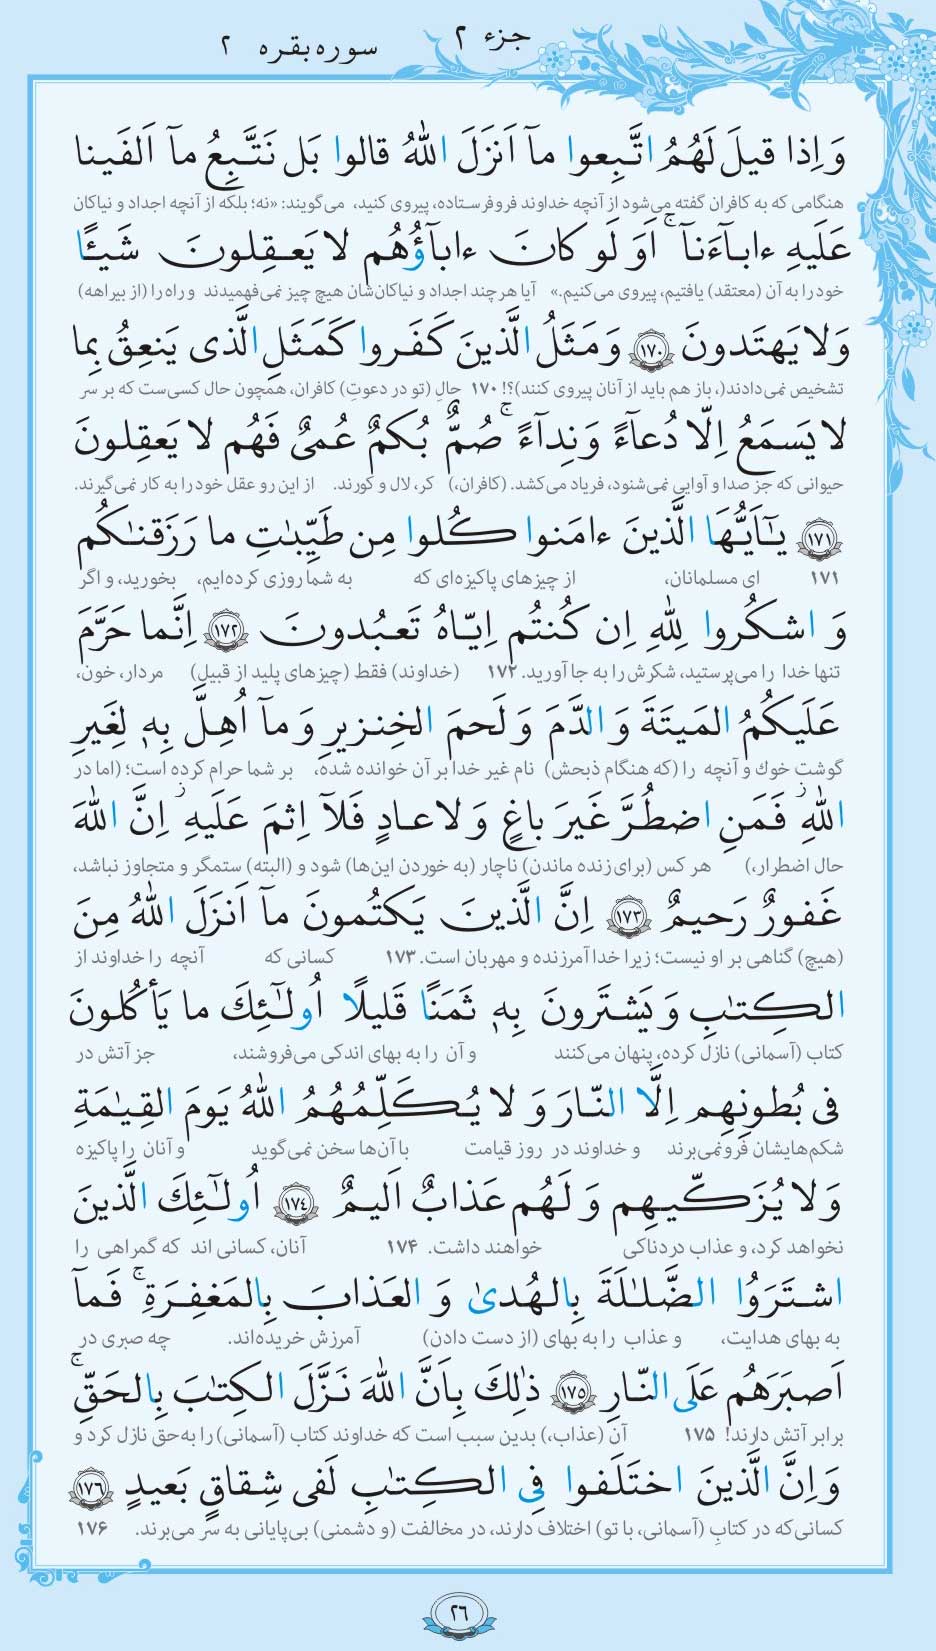 جزء ۲
سوره بقره ۲
وَاِذا قیلَ لَهُمُ اتَّبِعوا مآ اَنزَلَ اللّٰهُ قالوا بَل نَتَّبِعُ مآ اَلفَینا
هنگامی که به کافران گفته می‌شود از آنچه خداوند فروفرستاده، پیروی کنید، می‌گویند: «نه؛ بلکه از آنچه اجداد و نیاکان
عَلَیهِ ءابآءَنآ ۚ اَوَلَو کانَ ءابآؤُهُم لا یَعقِلونَ شَیـًٔا
خود را به آن (معتقد) یافتیم، پیروی می‌کنیم.» آیا هرچند اجداد و نیاکان‌شان هیچ چیز نمی‌فهمیدند و راه را (از بیراهه)
وَلا یَهتَدونَ ﴿۱۷۰﴾ وَمَثَلُ الَّذینَ کَفَروا کَمَثَلِ الَّذی یَنعِقُ بِما
تشخیص نمی‌دادند(، باز هم باید از آنان پیروی کنند)؟! ۱۷۰ حالِ (تو در دعوتِ) کافران، همچون حال کسی‌ست که بر سر
لا یَسمَعُ اِلّا دُعآءً وَنِدآءً ۚ صُمٌّ بُکمٌ عُمیٌ فَهُم لا یَعقِلونَ
حیوانی که جز صدا و آوایی نمی‌شنود، فریاد می‌کشد. (کافران،) کر، لال و کورند. از این رو عقل خود را به کار نمی‌گیرند.
﴿۱۷۱﴾ یـٰٓاَیُّهَا الَّذینَ ءامَنوا کُلوا مِن طَیِّبـٰتِ ما رَزَقنـٰکُم
۱۷۱ ای مسلمانان، از چیزهای پاکیزه‌ای که به شما روزی کرده‌ایم، بخورید، و اگر
وَ اشکُروا لِلّٰهِ اِن کُنتُم اِیّاهُ تَعبُدونَ ﴿۱۷۲﴾ اِنَّما حَرَّمَ
تنها خدا را می‌پرستید، شکرش را به جا آورید. ۱۷۲ (خداوند) فقط (چیزهای پلید از قبیل) مردار، خون،
عَلَیکُمُ المَیتَةَ وَ الدَّمَ وَ لَحمَ الخِنزیرِ وَ مآ اُهِلَّ بِهٖ لِغَیرِ
گوشت خوك و آنچه را (که هنگام ذبحش) نام غیر خدا بر آن خوانده شده، بر شما حرام کرده است؛ (اما در
اللّٰهِ ۖ فَمَنِ اضطُرَّ غَیرَ باغٍ وَ لا عادٍ فَلآ اِثمَ عَلَیهِ ۚ اِنَّ اللّٰهَ
حال اضطرار،) هر کس (برای زنده ماندن) ناچار (به خوردن این‌ها) شود و (البته) ستمگر و متجاوز نباشد،
غَفورٌ رَحیمٌ ﴿۱۷۳﴾ اِنَّ الَّذینَ یَکتُمونَ مآ اَنزَلَ اللّٰهُ مِنَ
(هیچ) گناهی بر او نیست؛ زیرا خدا آمرزنده و مهربان است. ۱۷۳ کسانی که آنچه را خداوند از
الکِتـٰبِ وَ یَشتَرونَ بِهٖ ثَمَنًا قَلیلًا اُولـٰٓئِكَ ما یَأکُلونَ
کتاب (آسمانی) نازل کرده، پنهان می‌کنند و آن را به بهای اندکی می‌فروشند، جز آتش در
فی بُطونِهِم اِلَّا النّارَ وَ لا یُکَلِّمُهُمُ اللّٰهُ یَومَ القِیـٰمَةِ
شکم‌هایشان فرونمی‌برند و خداوند در روز قیامت با آن‌ها سخن نمی‌گوید و آنان را پاکیزه
وَ لا یُزَکّیهِم وَ لَهُم عَذابٌ اَلیمٌ ﴿۱۷۴﴾ اُولـٰٓئِكَ الَّذینَ
نخواهد کرد، و عذاب دردناکی خواهند داشت. ۱۷۴ آنان، کسانی اند که گمراهی را
اشتَرَوُا الضَّلـٰلَةَ بِالهُدیٰ وَ العَذابَ بِالمَغفِرَةِ ۚ فَمآ
به بهای هدایت، و عذاب را به بهای (از دست دادن) آمرزش خریده‌اند. چه صبری در
اَصبَرَهُم عَلَی النّارِ ﴿۱۷۵﴾ ذٰلِكَ بِاَنَّ اللّٰهَ نَزَّلَ الکِتـٰبَ بِالحَقِّ ۚ
برابر آتش دارند! ۱۷۵ آن (عذاب،) بدین سبب است که خداوند کتاب (آسمانی) را به‌حق نازل کرد و
وَ اِنَّ الَّذینَ اختَلَفوا فِی الکِتـٰبِ لَفی شِقاقٍ بَعیدٍ ﴿۱۷۶﴾
کسانی‌که در کتابِ (آسمانی، با تو) اختلاف دارند، در مخالفت (و دشمنی) بی‌پایانی به سر می‌برند. ۱۷۶
۲۶